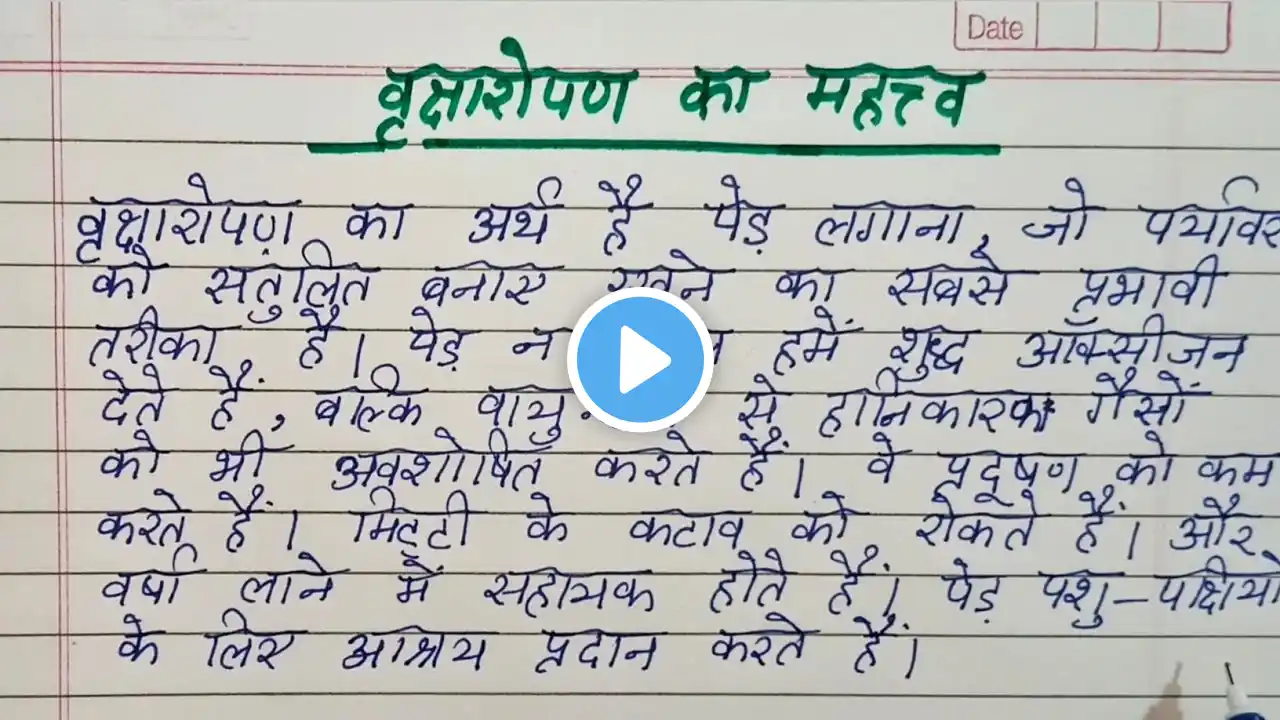 Date
वृक्षारोपण का महत्त्व
वृक्षारोपण का अर्थ है पेड़ लगाना, जो
को सतुलित बनाए का सबसे प्रभावी
तरीका है। पेड़ हमें शुद्ध ऑक्सीजन
देते हैं, बल्कि से हानिकारक गैसों
को भी अवशोषित करते हैं। वे प्रदूषण को कम
करते हैं। मिट्टी के कटाव को रोकते हैं। और
वर्षा लाने में सहायक होते हैं। पेड़ पशु-पक्षियो
के लिए आश्रय प्रदान करते हैं।